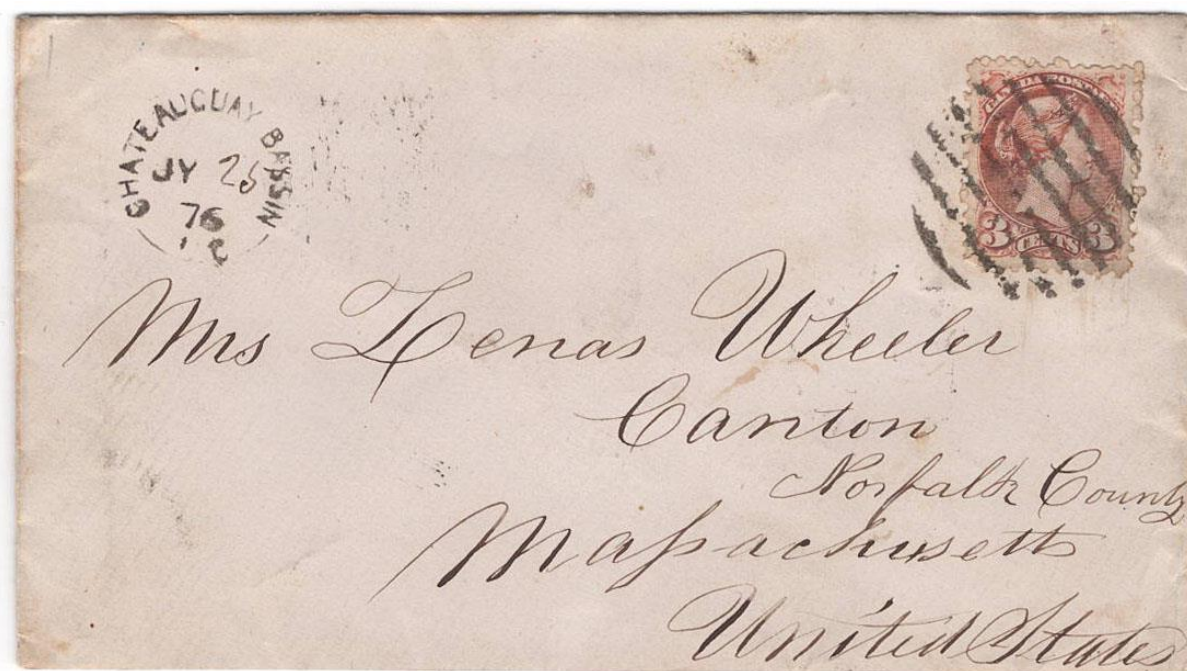 CHATEAUGUAY BASSIN
JY 26
76
CANADA POSTAGE
3 CENTS 3
Mrs Zenas Wheeler
Canton
Norfolk County
Massachusetts
United States